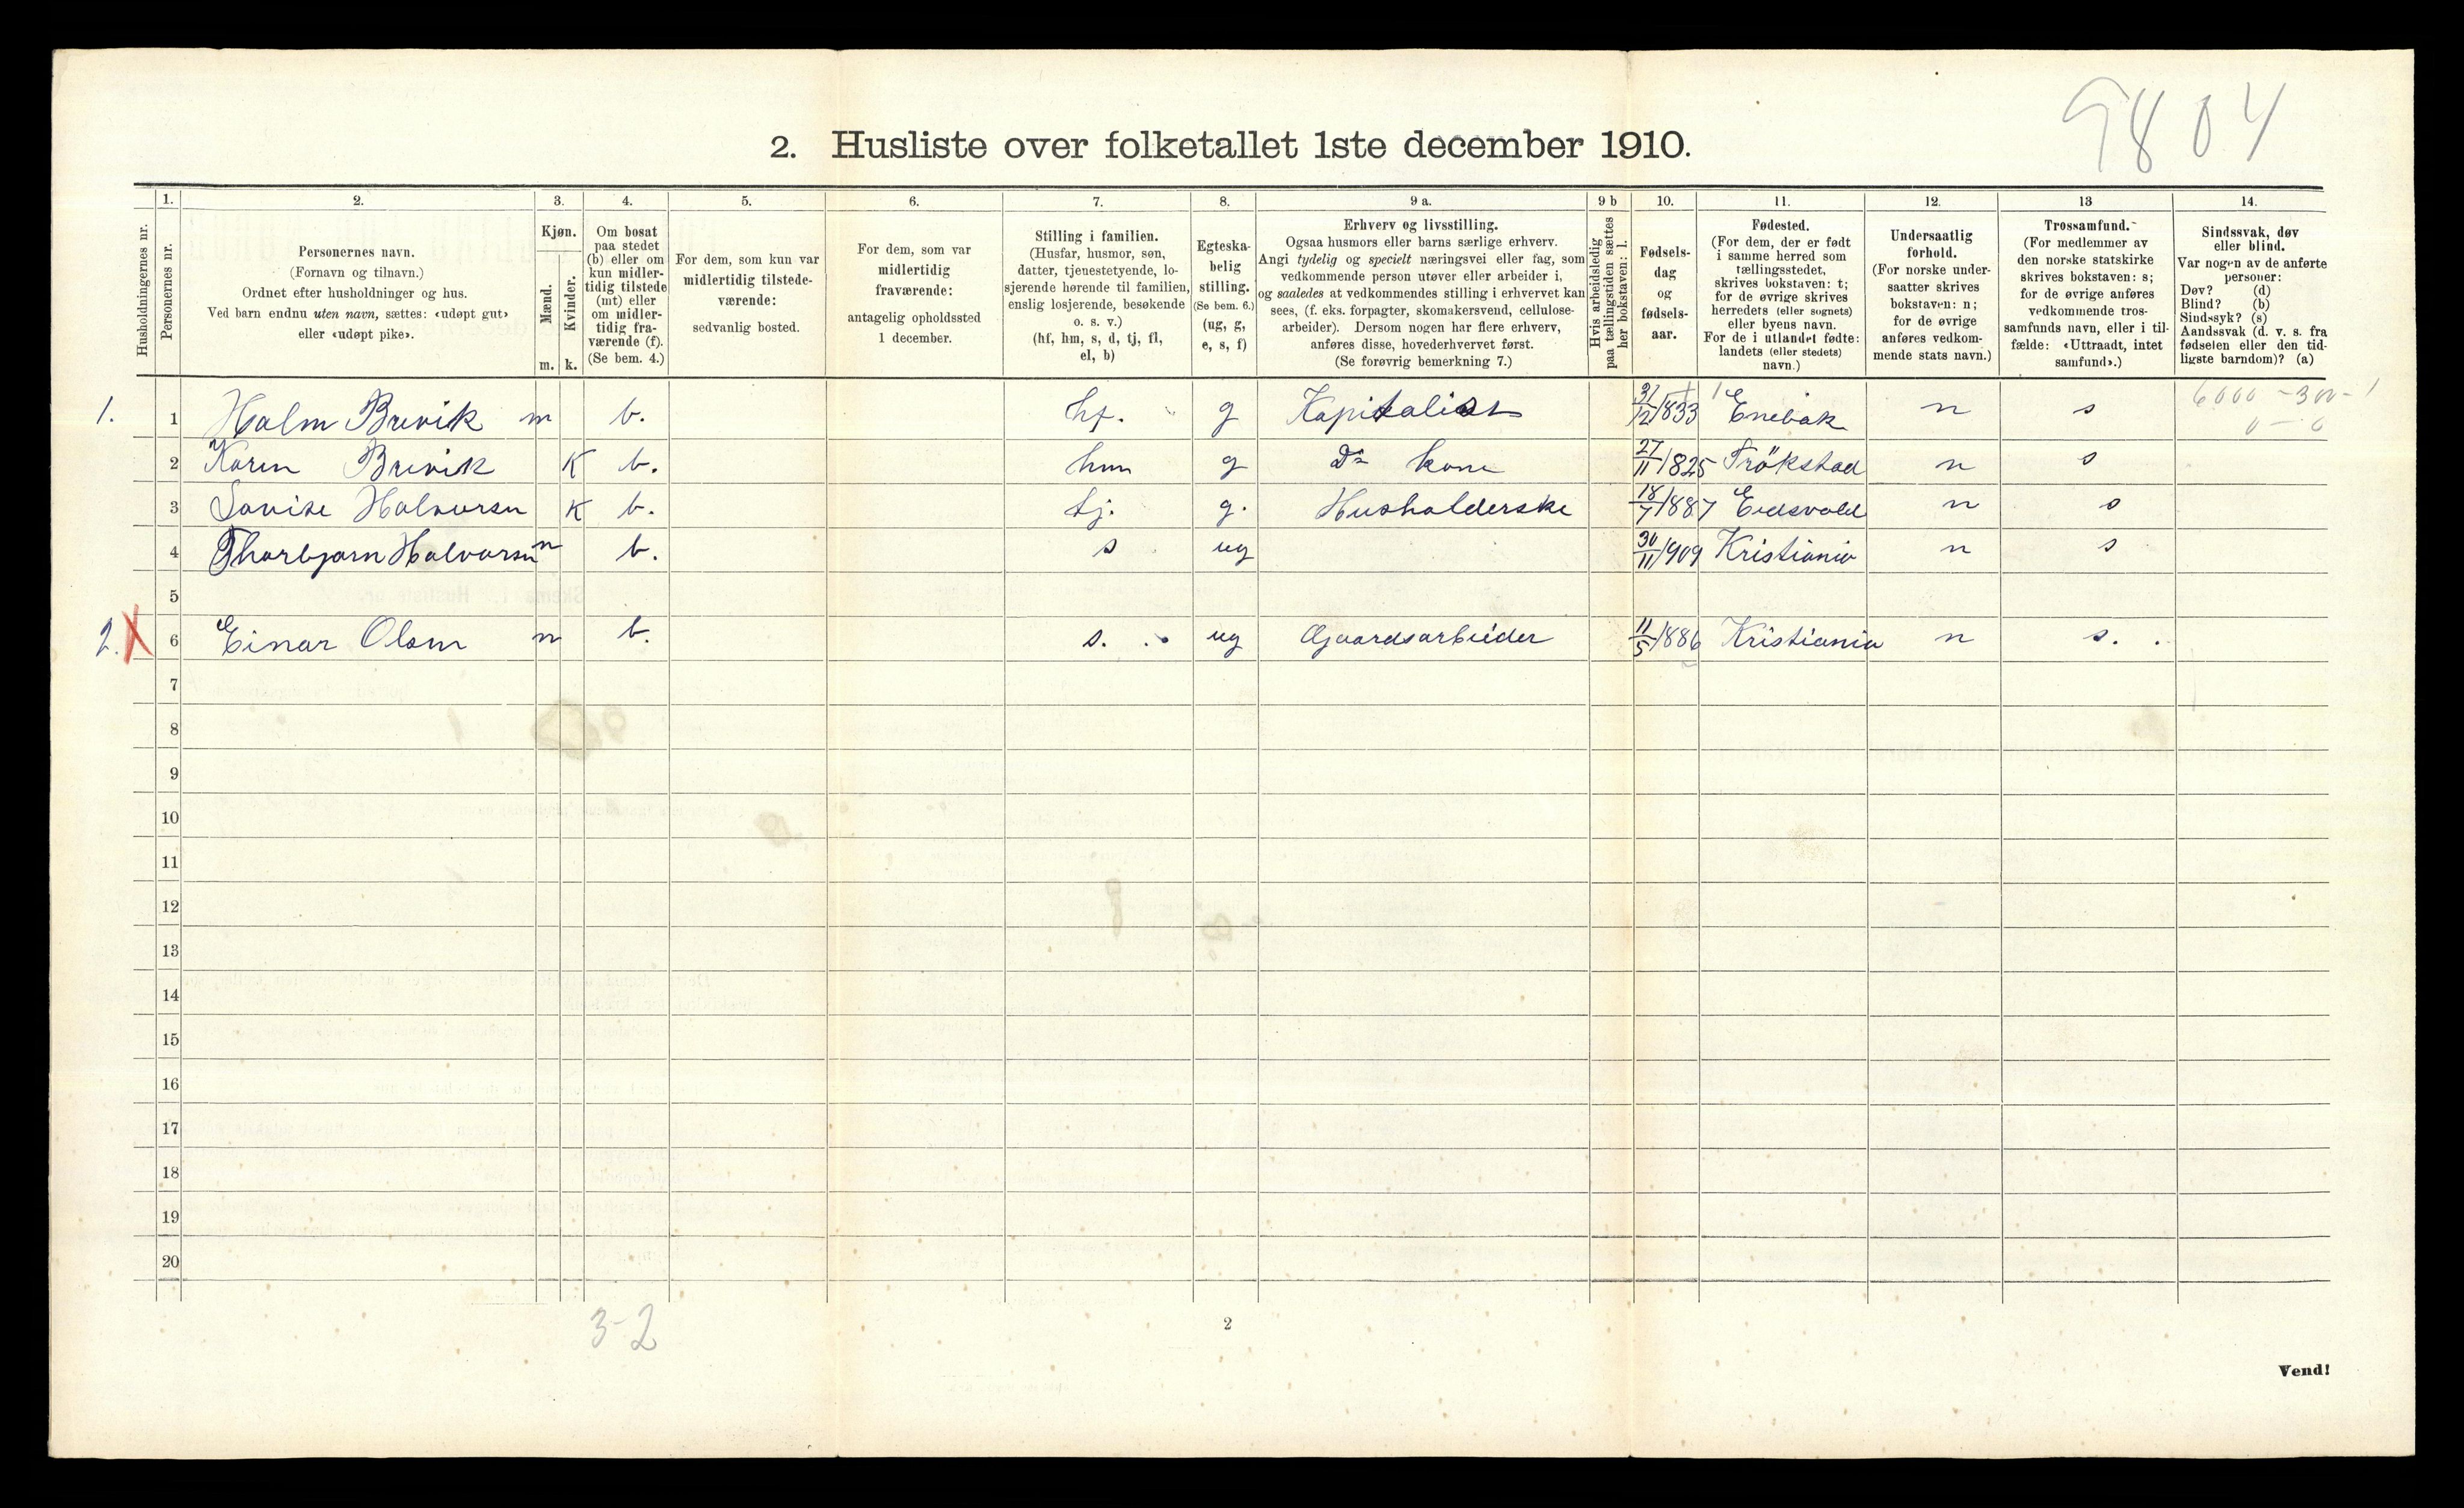 9804
2. Husliste over folketallet 1ste december 1910.
Husholdningernes nr.
1.
Personernes nr.
2.
Personernes navn.
(Fornavn og tilnavn.)
Ordnet efter husholdninger og hus.
Ved barn endnu uten navn, sættes: «udøpt gut»
eller «udøpt pike».
3.
Kjøn.
Mænd.
Kvinder.
m. k.
4.
Om bosat
paa stedet
(b) eller om
kun midler-
tidig tilstede
(mt) eller
om midler-
tidig fra-
værende (f).
(Se bem. 4.)
5.
For dem, som kun var
midlertidig tilstede-
værende:
sedvanlig bosted.
6.
For dem, som var
midlertidig
fraværende:
antagelig opholdssted
1 december.
7.
Stilling i familien.
(Husfar, husmor, søn,
datter, tjenestetyende, lo-
sjerende hørende til familien,
enslig losjerende, besøkende
o. s. v.)
(hf, hm, s, d, tj, fl,
el, b)
8.
Egteska-
belig
stilling.
(Se bem. 6.)
(ug, g,
e, s, f)
9 a.
Erhverv og livsstilling.
Ogsaa husmors eller barns særlige erhverv.
Angi tydelig og specielt næringsvei eller fag, som
vedkommende person utøver eller arbeider i,
og saaledes at vedkommendes stilling i erhvervet kan
sees, (f. eks. forpagter, skomakersvend, cellulose-
arbeider). Dersom nogen har flere erhverv,
anføres disse, hovederhvervet først.
(Se forøvrig bemerkning 7.)
9 b
Hvis arbeidsledig
paa tællingstiden sættes
her bokstaven: l.
10.
Fødsels-
dag
og
fødsels-
aar.
11.
Fødested.
(For dem, der er født
i samme herred som
tællingsstedet,
skrives bokstaven: t;
for de øvrige skrives
herredets (eller sognets)
eller byens navn.
For de i utlandet fødte:
landets (eller stedets)
navn.)
12.
Undersaatlig
forhold.
(For norske under-
saatter skrives
bokstaven: n;
for de øvrige
anføres vedkom-
mende stats navn.)
13
Trossamfund.
(For medlemmer av
den norske statskirke
skrives bokstaven: s;
for de øvrige anføres
vedkommende tros-
samfunds navn, eller i til-
fælde: «Uttraadt, intet
samfund».)
14.
Sindssvak, døv
eller blind.
Var nogen av de anførte
personer:
Døv? (d)
Blind? (b)
Sindssyk? (s)
Aandssvak (d. v. s. fra
fødselen eller den tid-
ligste barndom)? (a)
1. 1 Halm Brevik m b. hf. g Kapitalist 31/12 1833 Enebak n s 6000 - 300 - 1
0 - 0
2 Karen Brevik K b. hm g Do kone 27/11 1825 Trökstad n s
3 Lovise Halvorsen K b. tj. g. Husholderske 18/7 1887 Eidsvold n s
4 Thorbjørn Halvorsen m b. s ug 30/11 1909 Kristiania n s
5
2. X 6 Einar Olsen m b. s. ug Gaardsarbeider 11/5 1886 Kristiania n s.
7
8
9
10
11
12
13
14
15
16
17
18
19
20
3-2
2
Vend!